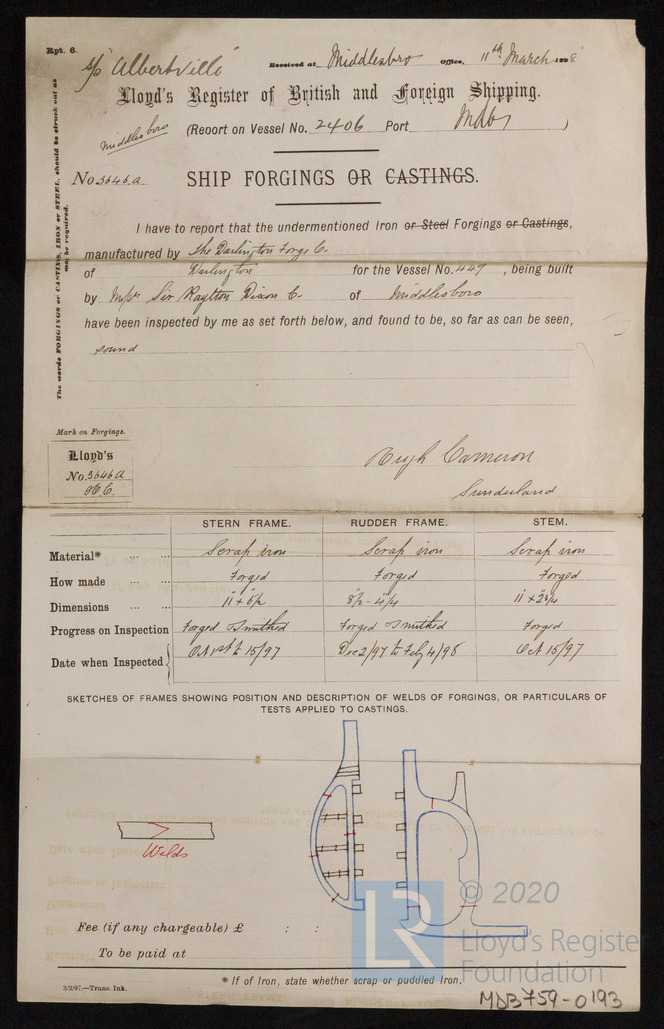 Rpt. 6.
S/S "Albertville"
Received at Middlesbro Office, 11th March 1898
Lloyd's Register of British and Foreign Shipping.
Middlesboro
(Report on Vessel No. 2406 Port Mdbr)
No 3646.a.
SHIP FORGINGS OR CASTINGS.
The words FORGINGS or CASTINGS, IRON or STEEL, should be struck out as may be required.
I have to report that the undermentioned Iron or Steel Forgings or Castings,
manufactured by The Darlington Forge Co.
of Darlington for the Vessel No. 447, being built
by Messrs Sir Raylton Dixon Co. of Middlesboro
have been inspected by me as set forth below, and found to be, so far as can be seen,
sound
Mark on Forgings.
Lloyd's
No. 3646a
H.C.
Hugh Cameron
Sunderland
STERN FRAME. RUDDER FRAME. STEM.
Material* ... ... Scrap iron Scrap iron Scrap iron
How made ... Forged Forged Forged
Dimensions ... ... 11" + 6"/2 8/2 - 4/4 11" + 2 3/4
Progress on Inspection Forged Smithed Forged Smithed Forged
Date when Inspected Oct 1st to 15/97 Dec 2/97 to Feby 4/98 Oct 15/97
SKETCHES OF FRAMES SHOWING POSITION AND DESCRIPTION OF WELDS OF FORGINGS, OR PARTICULARS OF
TESTS APPLIED TO CASTINGS.
Welds
Fee (if any chargeable) £ : :
To be paid at
* If of Iron, state whether scrap or puddled iron.
3/2/97.—Trans. Ink.
LR
© 2020
Lloyd's Register
Foundation
MDB759-0193